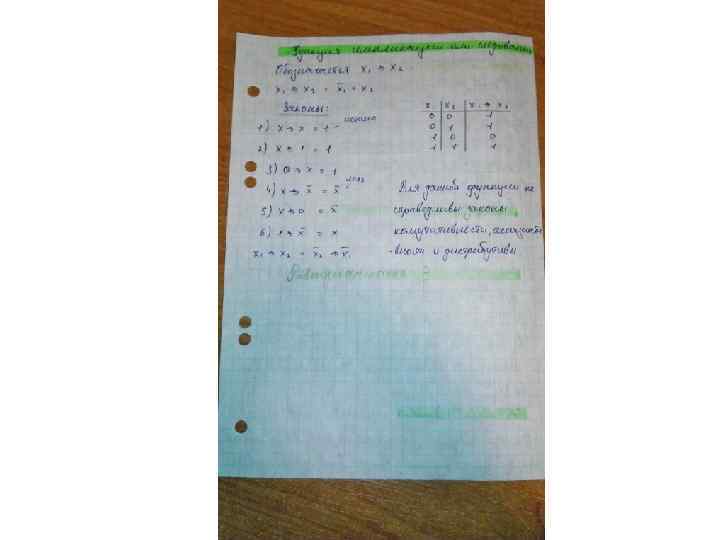 Функция импликации или следования
Обозначается x₁ → x₂
x₁ → x₂ = x̄₁ + x₂
Законы:
1) x → x = 1 - истина
2) x → 1 = 1
3) 0 → x = 1
4) x → x̄ = x̄
5) x → 0 = x̄
6) 1 → x = x
x₁ → x₂ = x̄₂ → x̄₁
x₁ x₂ x₁ → x₂
0 0 1
0 1 1
1 0 0
1 1 1
Для данной функции не
справедливы законы
коммутативности, ассоциати
-вности и дистрибутивн